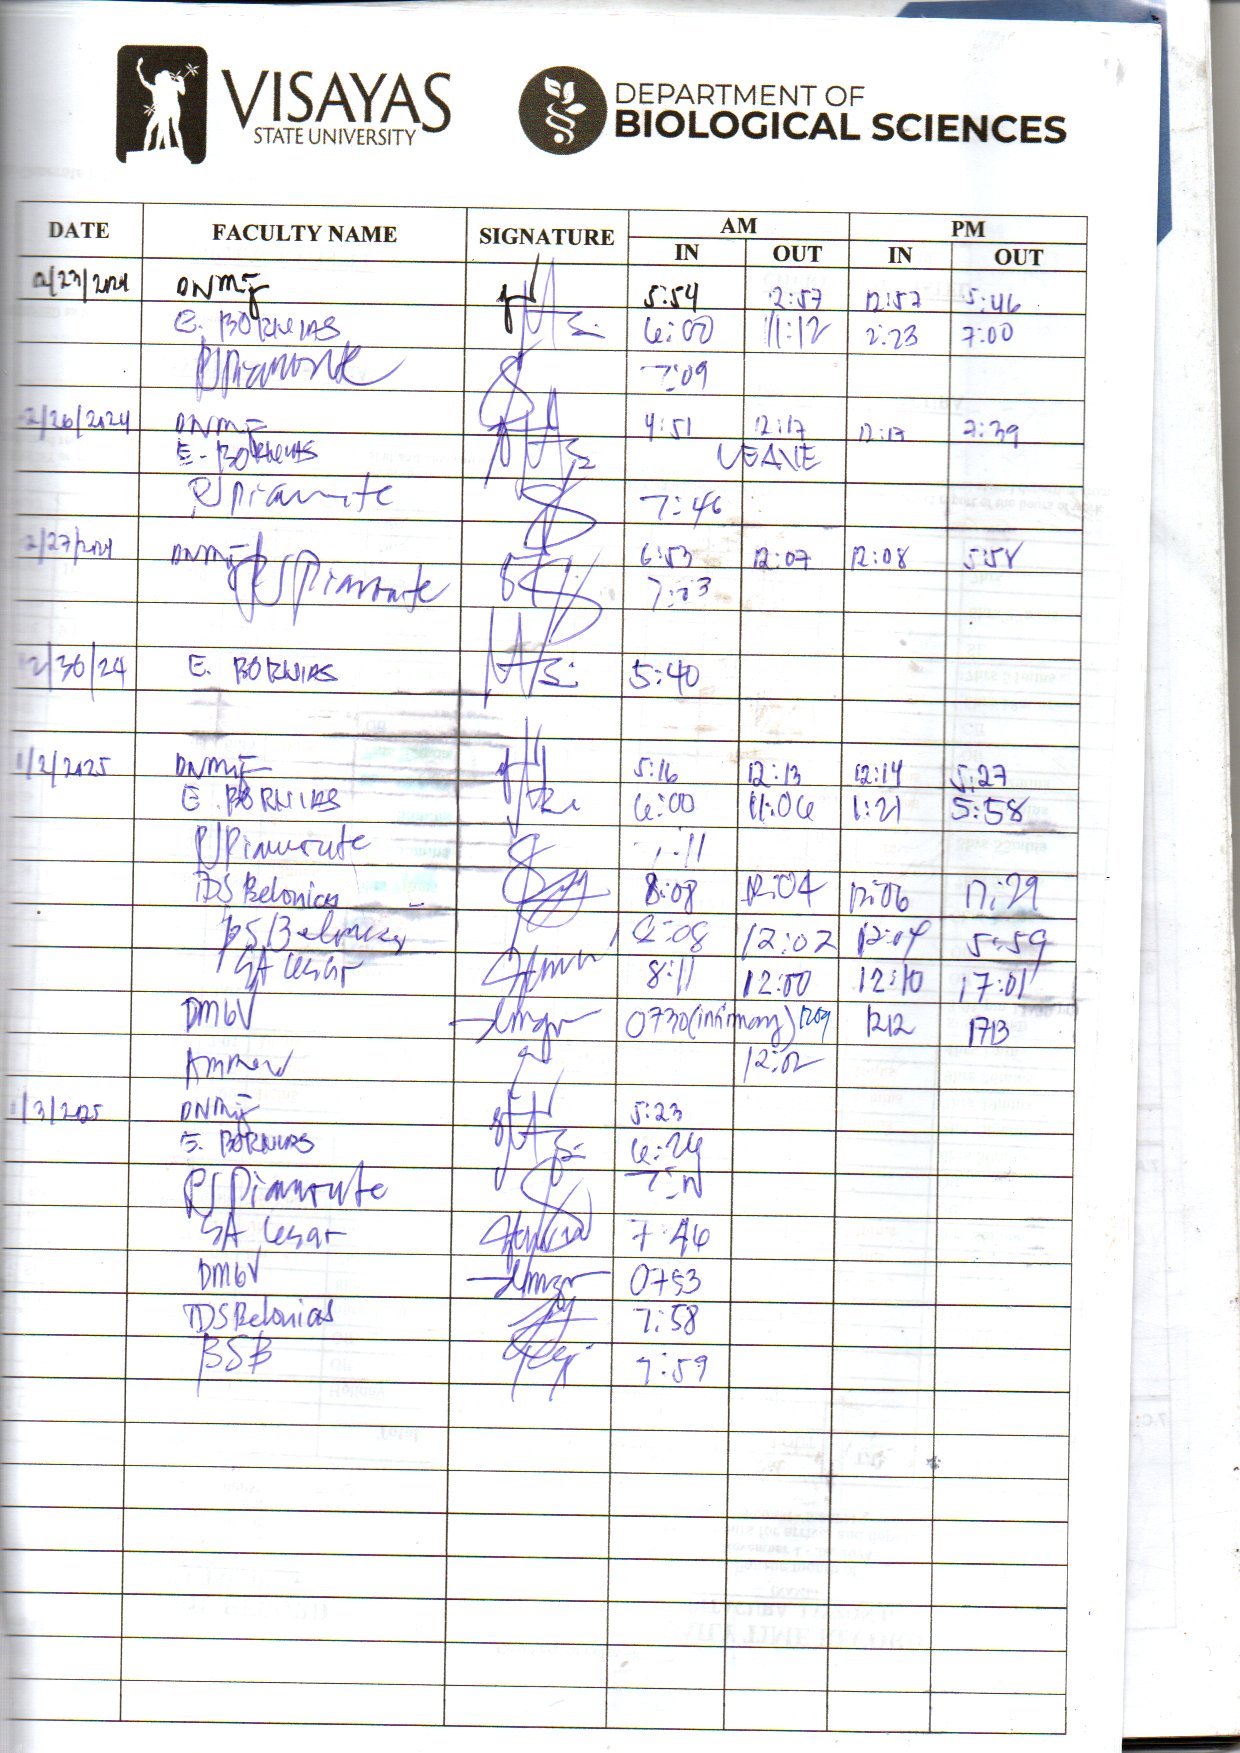 VISAYAS
STATE UNIVERSITY
DEPARTMENT OF
BIOLOGICAL SCIENCES
DATE FACULTY NAME SIGNATURE AM PM
IN OUT IN OUT
12/23/2024 DNMJ 5:54 12:57 12:57 5:46
E. BORNIAS 6:00 11:12 2:23 7:00
PJPiamonte 7:09
12/26/2024 DNMJ 4:51 12:17 12:17 7:39
E. BORNIAS LEAVE
PJPiamonte 7:46
12/27/2024 DNMJ 6:53 12:07 12:08 5:58
PJPiamonte
12/30/24 E. BORNIAS 5:40
1/2/2025 DNMJ 5:16 12:13 12:14 5:27
E. BORNIAS 6:00 11:06 1:21 5:58
PJPiamonte 7:11
TDSBelonias 8:08 12:04 12:06 17:29
BSBelonias 8:08 12:02 12:04 5:59
SA Cesar 8:11 12:00 12:10 17:01
DMGV 0730(infirmary) 1209 1212 1713
12:02
1/3/2025 DNMJ 5:23
E. BORNIAS 6:24
PJPiamonte
SA Cesar 7:46
DMGV 0753
TDSBelonias 7:58
BSB 7:59